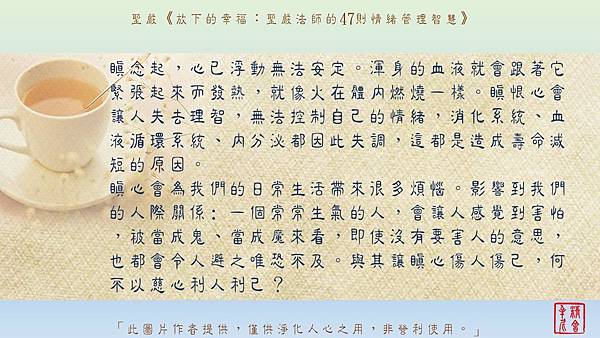 聖嚴《放下的幸福：聖嚴法師的47則情緒管理智慧》
瞋念起，心已浮動無法安定。渾身的血液就會跟著它
緊張起來而發熱，就像火在體內燃燒一樣。瞋恨心會
讓人失去理智，無法控制自己的情緒，消化系統、血
液循環系統、內分泌都因此失調，這都是造成壽命減
短的原因。
瞋心會為我們的日常生活帶來很多煩惱。影響到我們
的人際關係：一個常常生氣的人，會讓人感覺到害怕
，被當成鬼、當成魔來看，即使沒有要害人的意思，
也都會令人避之唯恐不及。與其讓瞋心傷人傷己，何
不以慈心利人利己？
「此圖片作者提供，僅供淨化人心之用，非營利使用。」